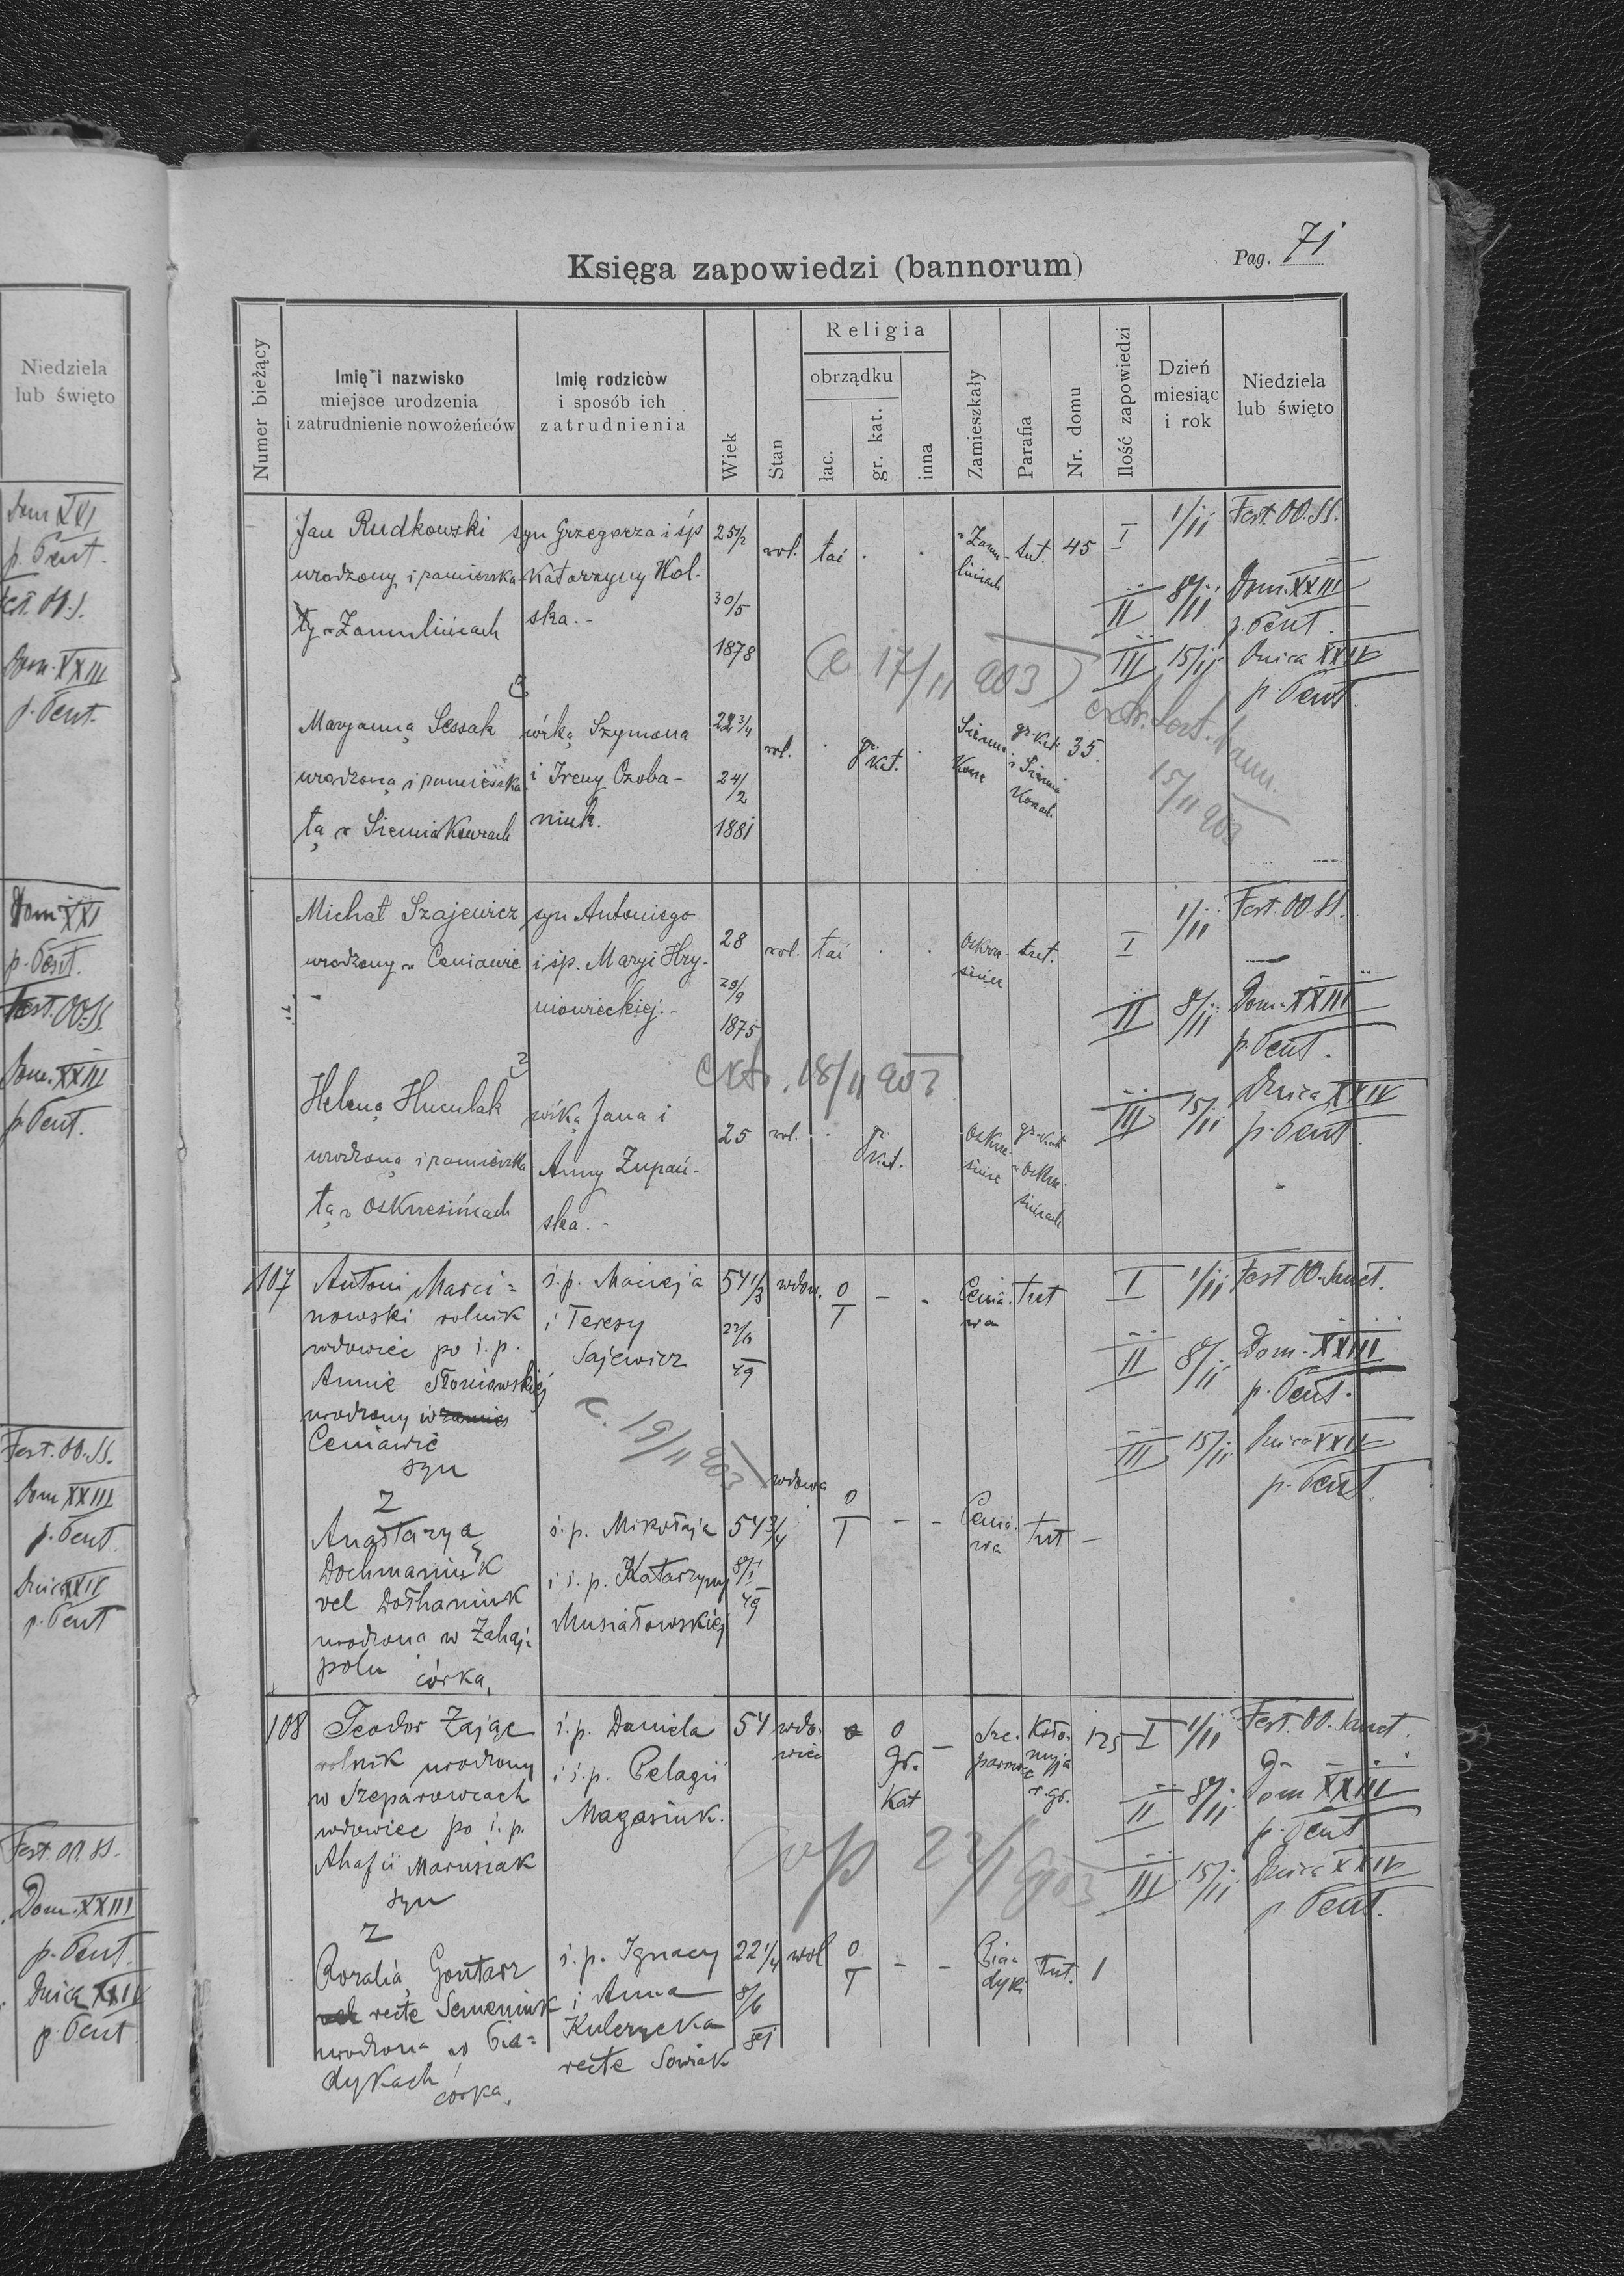 Niedziela
lub święto
Dom XXI
p. Pent.
Fest. OO.S.
Dom. XXIII
p. Pent.
Dom XXI
p. Pent.
Fest. OO.SS.
Dom. XXIII
p. Pent.
Fest. OO.SS.
Dom XXIII
p. Pent.
Dnica XXIV
p. Pent
Fest. OO.SS.
Dom. XXIII
p. Pent.
Dnica XXIV
p. Pent
Księga zapowiedzi (bannorum)
Pag. 71
Numer bieżący
Imię i nazwisko
miejsce urodzenia
i zatrudnienie nowożeńców
Imię rodziców
i sposób ich
zatrudnienia
Wiek
Stan
Religia
obrządku
łac.
gr. kat.
inna
Zamieszkały
Parafia
Nr. domu
Ilość zapowiedzi
Dzień
miesiąc
i rok
Niedziela
lub święto
Jan Rudkowski syn Grzegorza i śp 25 1/2 wol. łać . . tut. 45 I 1/11 Fest. OO. SS.
urodzony i zamieszka Katarzyny Wol-
ły w ska. - 30/5 II 8/11 Dom. XXIII
p. Pent.
1878 (c 17/11 903) III 15/11 Dnica XXIV
p. Pent.
z
Maryanną Sessak córką Szymona 22 3/4 wol. . gr. kat. . gr. kat. 35.
urodzoną i zamieszka i Ireny Czoba- 24/2
łą w Siemiakowcach niuk. 1881
15/11 903
Michał Szajewicz syn Antoniego 28 wol. łać . . tut. I 1/11 Fest. OO. SS.
urodzony w Ceniawie i śp. Maryi Hry-
niowieckiej. - 29/9 II 8/11 Dom. XXIII
1875 p. Pent.
z
18/11 903
Heleną Huculak córką Jana i 25 wol. . gr. kat. gr. kat III 15/11 Dnica XXIV
urodzoną i zamieszka Anny Zupań- p. Pent.
łą w Oskrzesińcach ska. -
107 Antoni Marci= ś. p. Macieja 54 1/3 wdow. O - - Cenia- tut I 1/11 Fest OO. Sanct.
nowski rolnik i Teresy Ł wa
wdowiec po ś. p. Sajewicz 49 II 8/11 Dom. XXIII
Annie Słoniowskiej p. Pent.
urodzony w
Ceniawie c. 19/11 903 III 15/11 Dnica XXIV
syn p. Pent.
z wdowa
Anastazya ś. p. Mikołaja 54 3/4 O - - Cenia- tut -
Dochmaniuk i ś. p. Katarzyny 8/1 Ł wa
vel Dołhaniuk Musiałowskiej 49
urodzona w Zahaj-
polu córka,
108 Teodor Zając ś. p. Daniela 54 wdo- O - Sze- Koło- 125 I 1/11 Fest. OO. Sanct.
rolnik urodzony i ś. p. Pelagii wiec gr. parowce myja
w Szeparowcach Magasiuk. Kat r. gr. II 8/11 Dom XXIII
wdowiec po ś. p. p. Pent
Ahafii Marusiak III 15/11 Dnica XXIV
syn p Pent.
z
Rozalia Gontarz ś. p. Ignacy 22 1/4 wol O - - Pia- tut. 1
recte Semeniuk i Anna 8/6 Ł dyki
urodzona w Pia= Kulczycka 81
dykach recte Sowiak
córka,